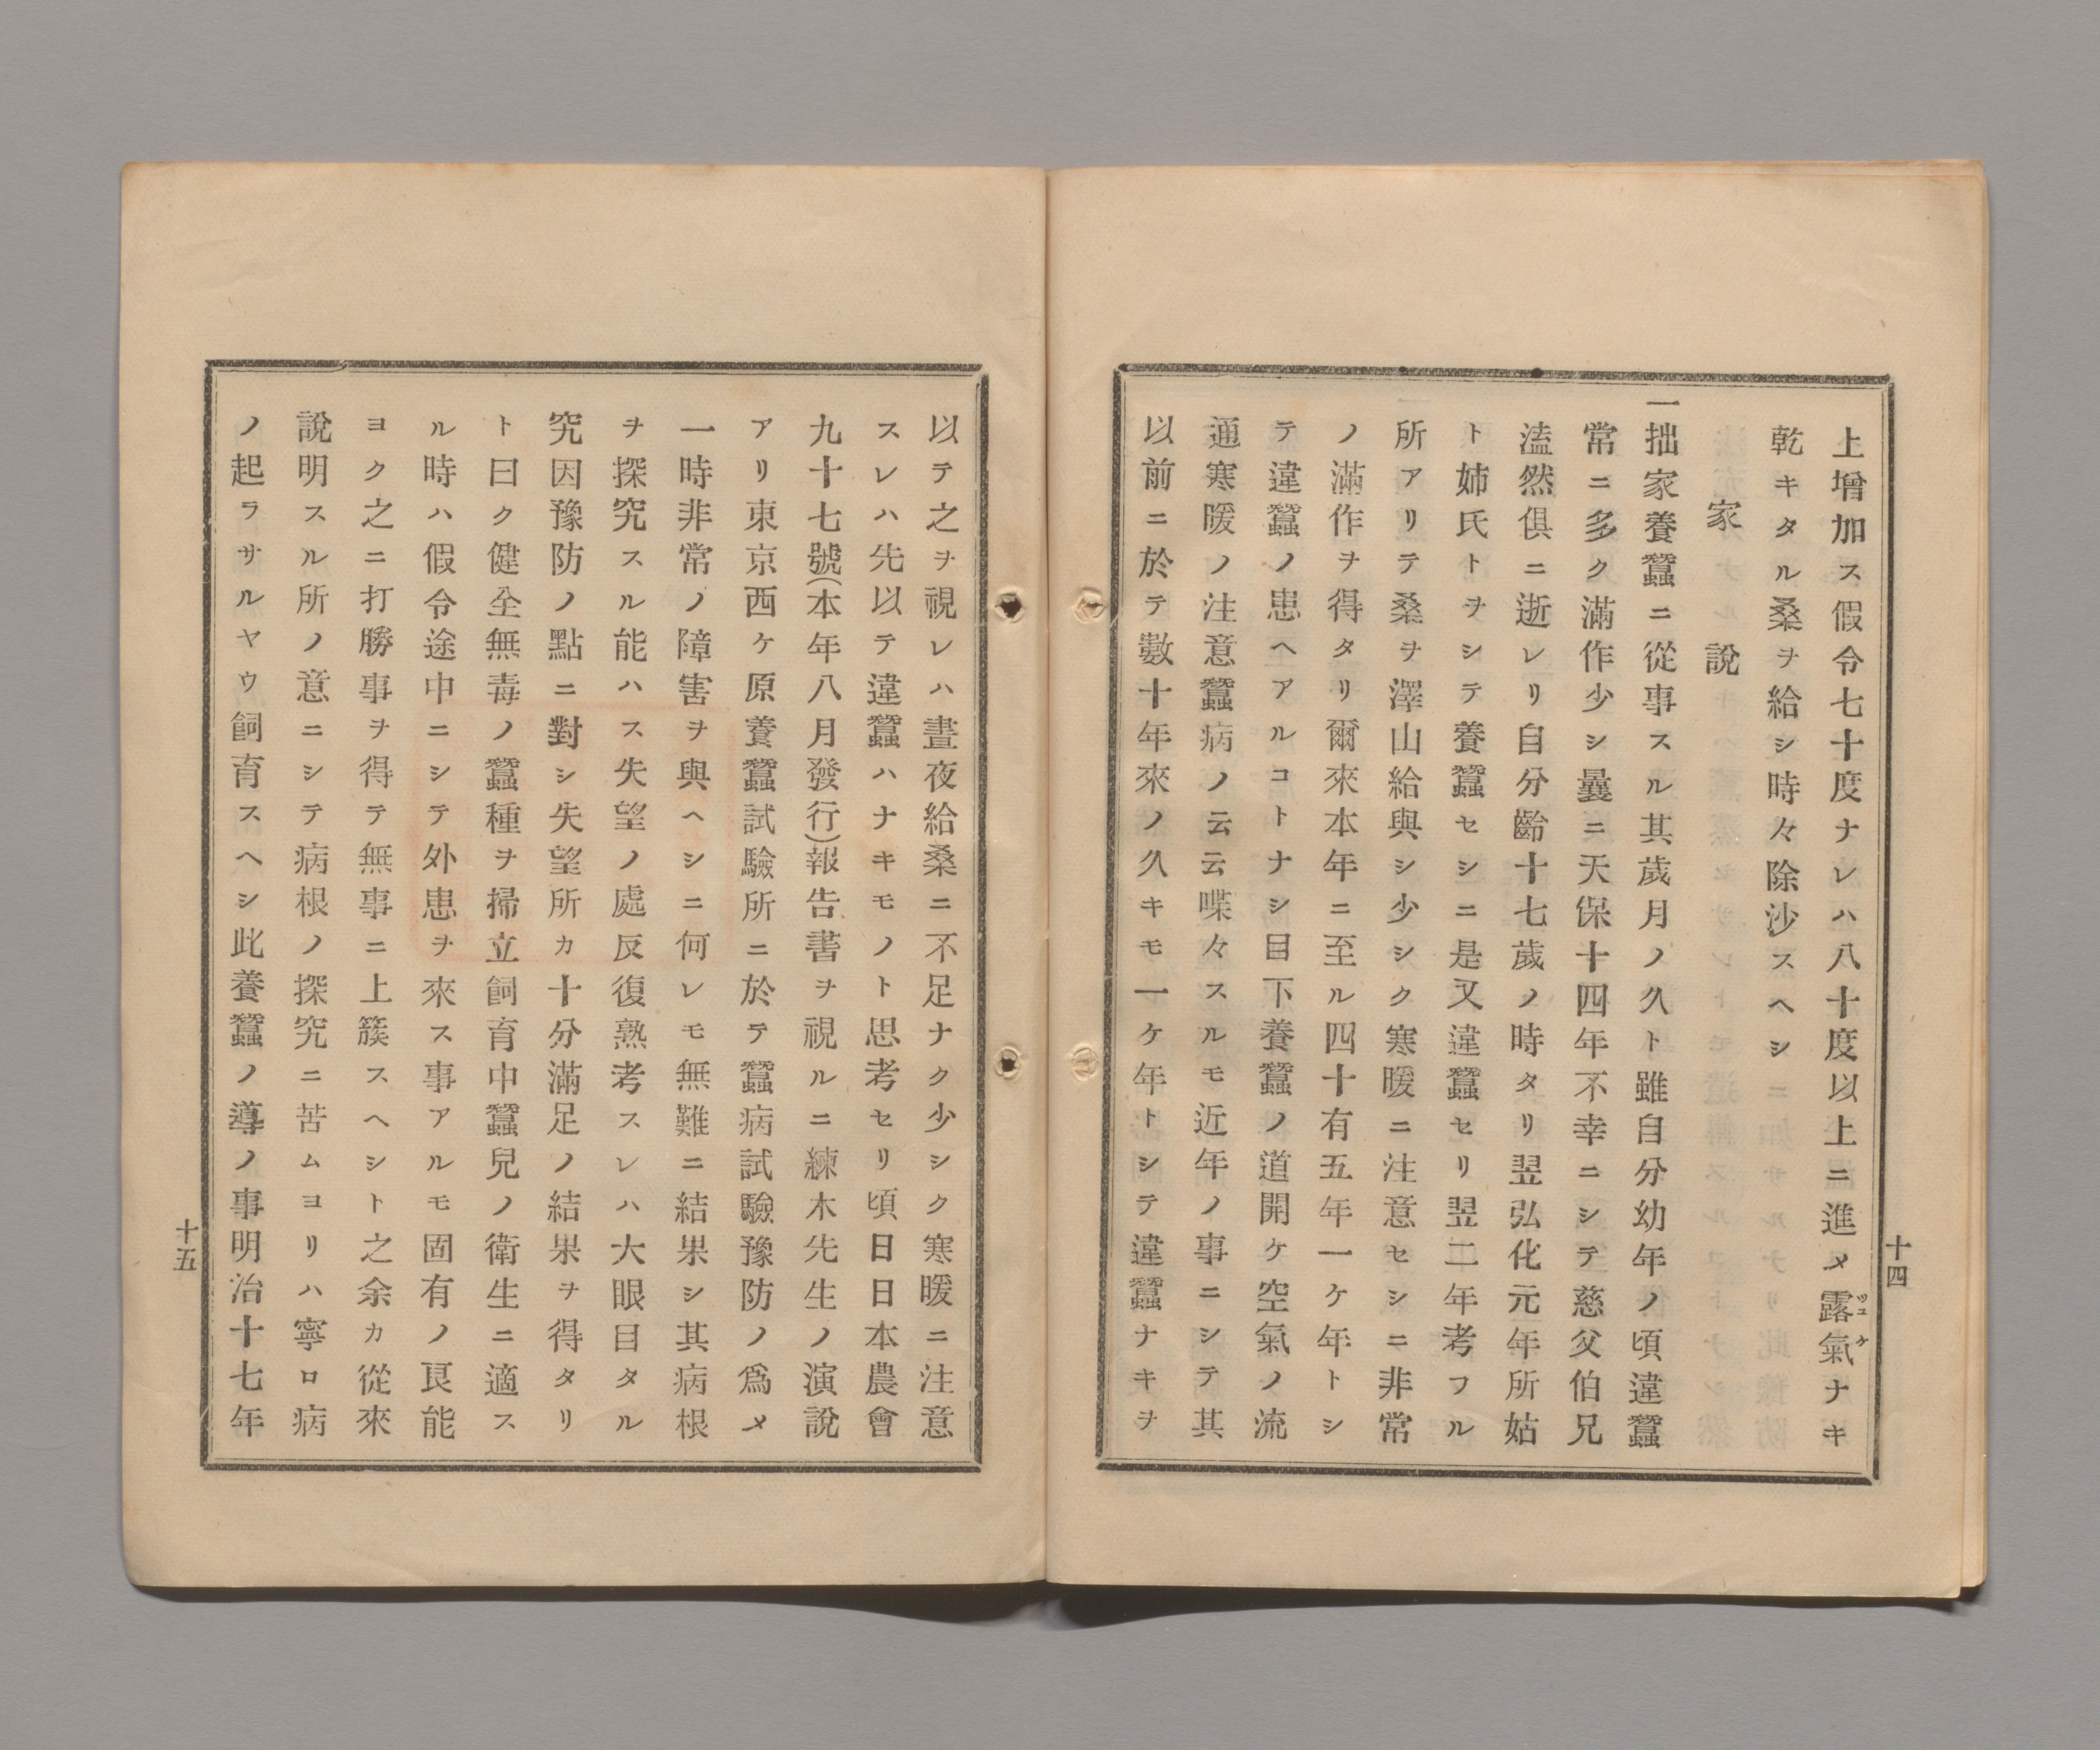 十四
上增加ス假令七十度ナレハ八十度以上ニ進メ露氣ナキ
ツユケ
乾キタル桑ヲ給シ時々除沙スヘシ
家說
一拙家養蠶ニ從事スル其歲月ノ久ト雖自分幼年ノ頃違蠶
常ニ多ク滿作少シ曩ニ天保十四年不幸ニシテ慈父伯兄
溘然俱ニ逝レリ自分齡十七歲ノ時タリ翌弘化元年所姑
ト姉氏トヲシテ養蠶セシニ是又違蠶セリ翌二年考フル
所アリテ桑ヲ澤山給與シ少シク寒暖ニ注意セシニ非常
ノ滿作ヲ得タリ爾來本年ニ至ル四十有五年一ケ年トシ
テ違蠶ノ患ヘアルコトナシ目下養蠶ノ道開ケ空氣ノ流
通寒暖ノ注意蠶病ノ云云喋々スルモ近年ノ事ニシテ其
以前ニ於テ數十年來ノ久キモ一ケ年トシテ違蠶ナキヲ
以テ之ヲ視レハ晝夜給桑ニ不足ナク少シク寒暖ニ注意
スレハ先以テ違蠶ハナキモノト思考セリ頃日日本農會
九十七號(本年八月發行)報告書ヲ視ルニ練木先生ノ演說
アリ東京西ケ原養蠶試驗所ニ於テ蠶病試驗豫防ノ爲メ
一時非常ノ障害ヲ與ヘシニ何レモ無難ニ結果シ其病根
ヲ探究スル能ハス失望ノ處反復熟考スレハ大眼目タル
究因豫防ノ點ニ對シ失望所カ十分滿足ノ結果ヲ得タリ
ト曰ク健全無毒ノ蠶種ヲ掃立飼育中蠶兒ノ衛生ニ適ス
ル時ハ假令途中ニシテ外患ヲ來ス事アルモ固有ノ良能
ヨク之ニ打勝事ヲ得テ無事ニ上簇スヘシト之余カ從來
說明スル所ノ意ニシテ病根ノ探究ニ苦ムヨリハ寧ロ病
ノ起ラサルヤウ飼育スヘシ此養蠶ノ導ノ事明治十七年
十五